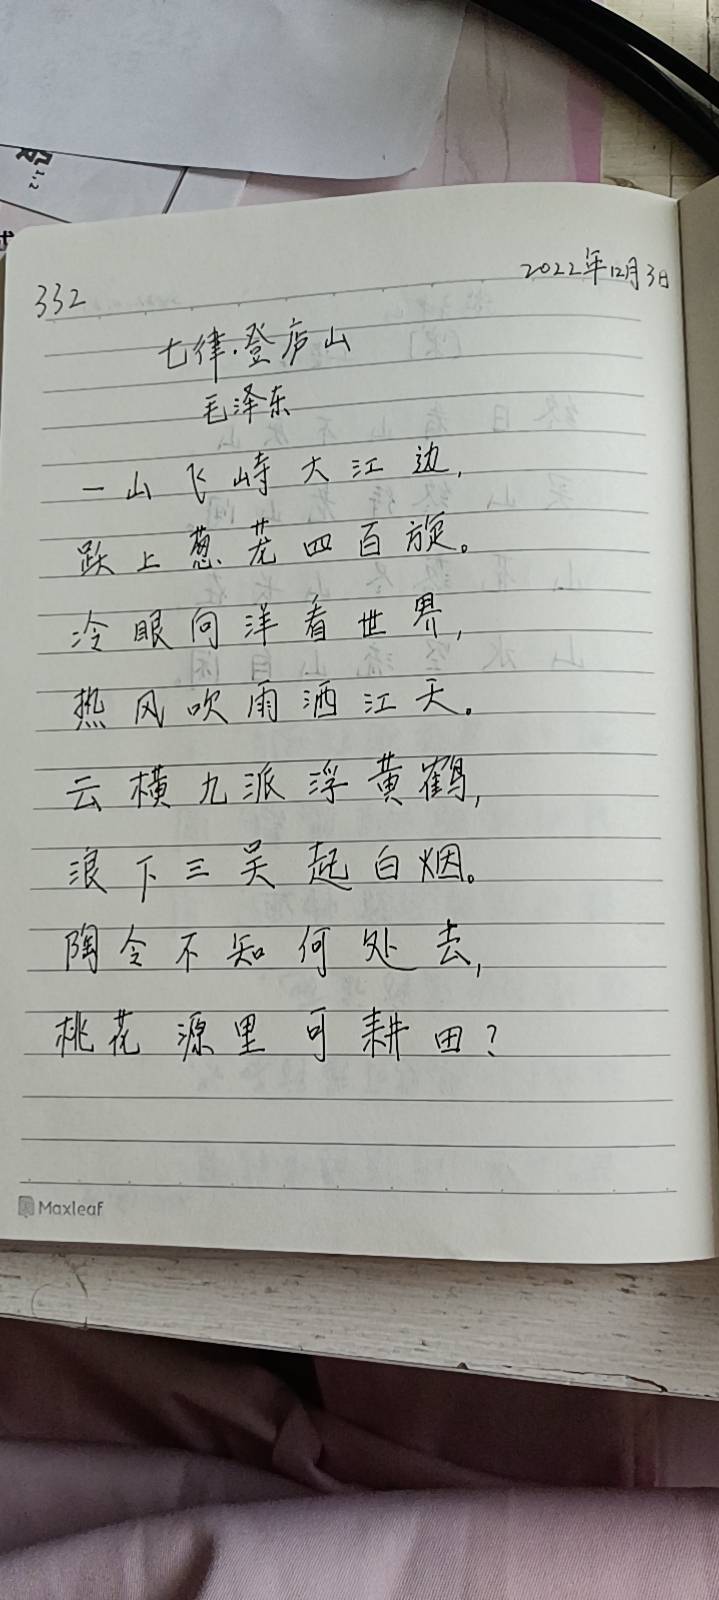 332
2022年12月3日
七律·登庐山
毛泽东
一山飞峙大江边，
跃上葱茏四百旋。
冷眼向洋看世界，
热风吹雨洒江天。
云横九派浮黄鹤，
浪下三吴起白烟。
陶令不知何处去，
桃花源里可耕田？
Maxleaf